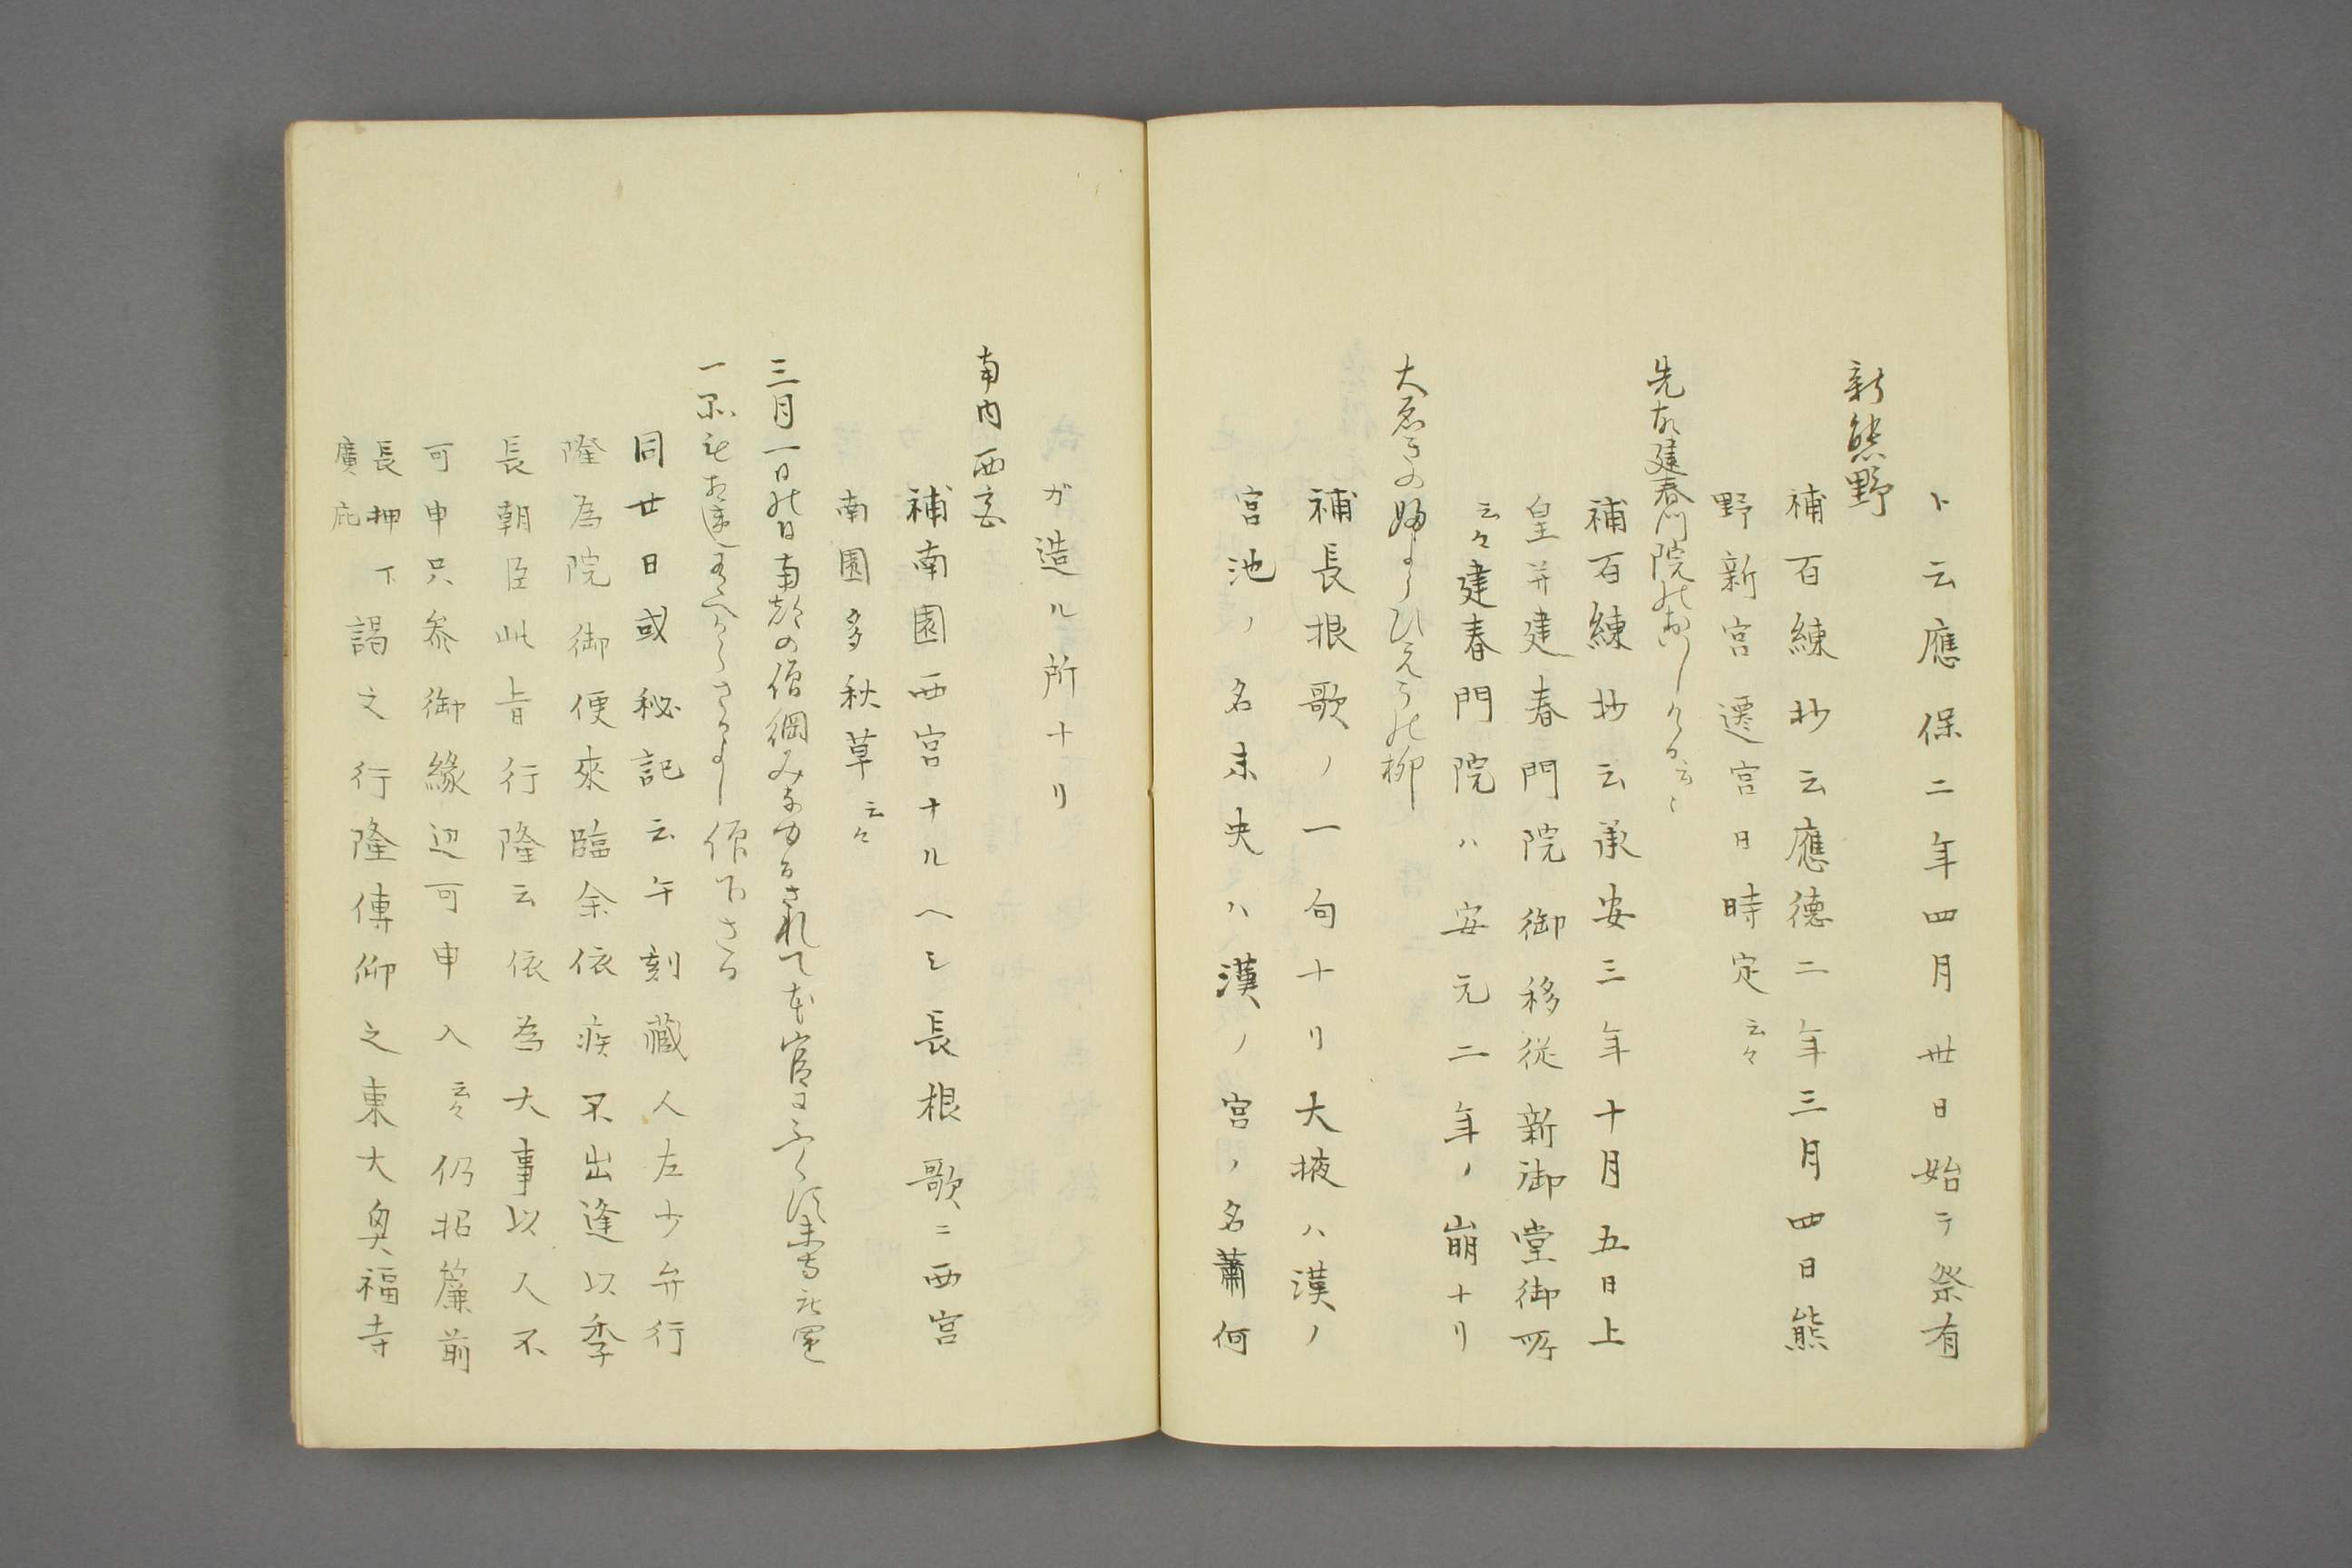 ト云應保二年四月丗日始テ祭有
新熊野
補百練抄云應德二年三月四日熊
野新宮遷宮日時定云々
先故建春門院のおはしける云々
補百練抄云承安三年十月五日上
皇并建春門院御移從新御堂御所
云々建春門院ハ安元二年ノ崩ナリ
大ゑきの婦よう ひえうの柳
補長根歌ノ一句ナリ大掖ハ漢ノ
宮池ノ名未央ハ漢ノ宮ノ名蕭何
ガ造ル所ナリ
南内西宮
補南園西宮ナルヘシ長根歌ニ西宮
南園多秋草云々
三月一日の日南都の僧綱みなゆるされて本官にふくす末寺庄園
一所も相違あるへからさるよし仰下さる
同廿日或秘記云午刻藏人左少弁行
隆為院御使來臨余依疾不出逢以季
長朝臣此旨行隆云依為大事以人不
可申只參御緣辺可申入云々仍招簾前
長押下謁之行隆傳仰之東大興福寺
廣庇